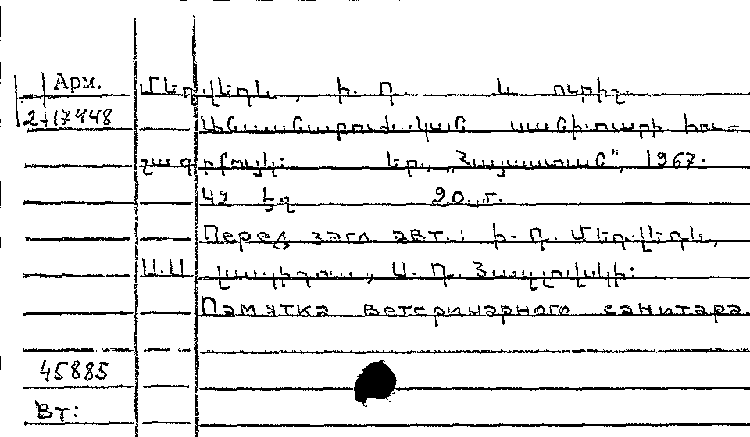 Арм.
2-17448
Մեդվեդև, Ի. Դ. և ուրիշ
Անասնաբուժական սանիտարի հու-
շագրքույկ: Եր., "Հայաստան", 1967.
42 էջ 20. г.
Перед загл. авт.: Ի. Դ. Մեդվեդև,
Ա. Դ.
Памятка ветеринарного санитара.
45885
Вт: